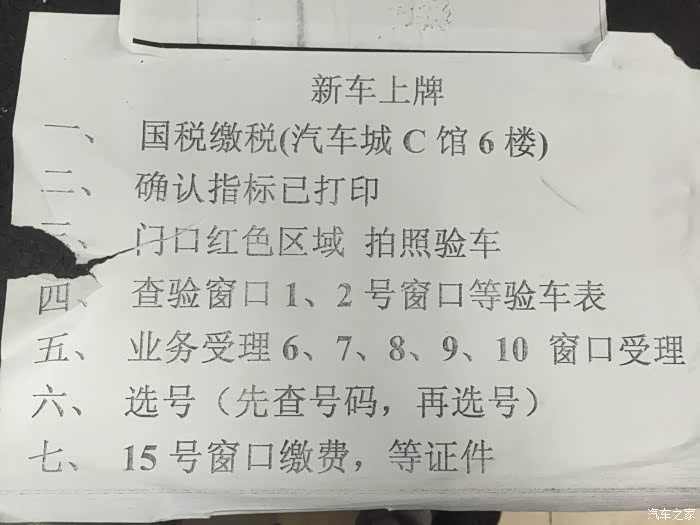 新车上牌
一、 国税缴税(汽车城 C 馆 6 楼)
二、 确认指标已打印
三、 门口红色区域 拍照验车
四、 查验窗口 1、2 号窗口等验车表
五、 业务受理 6、7、8、9、10 窗口受理
六、 选号（先查号码，再选号）
七、 15 号窗口缴费，等证件
汽车之家